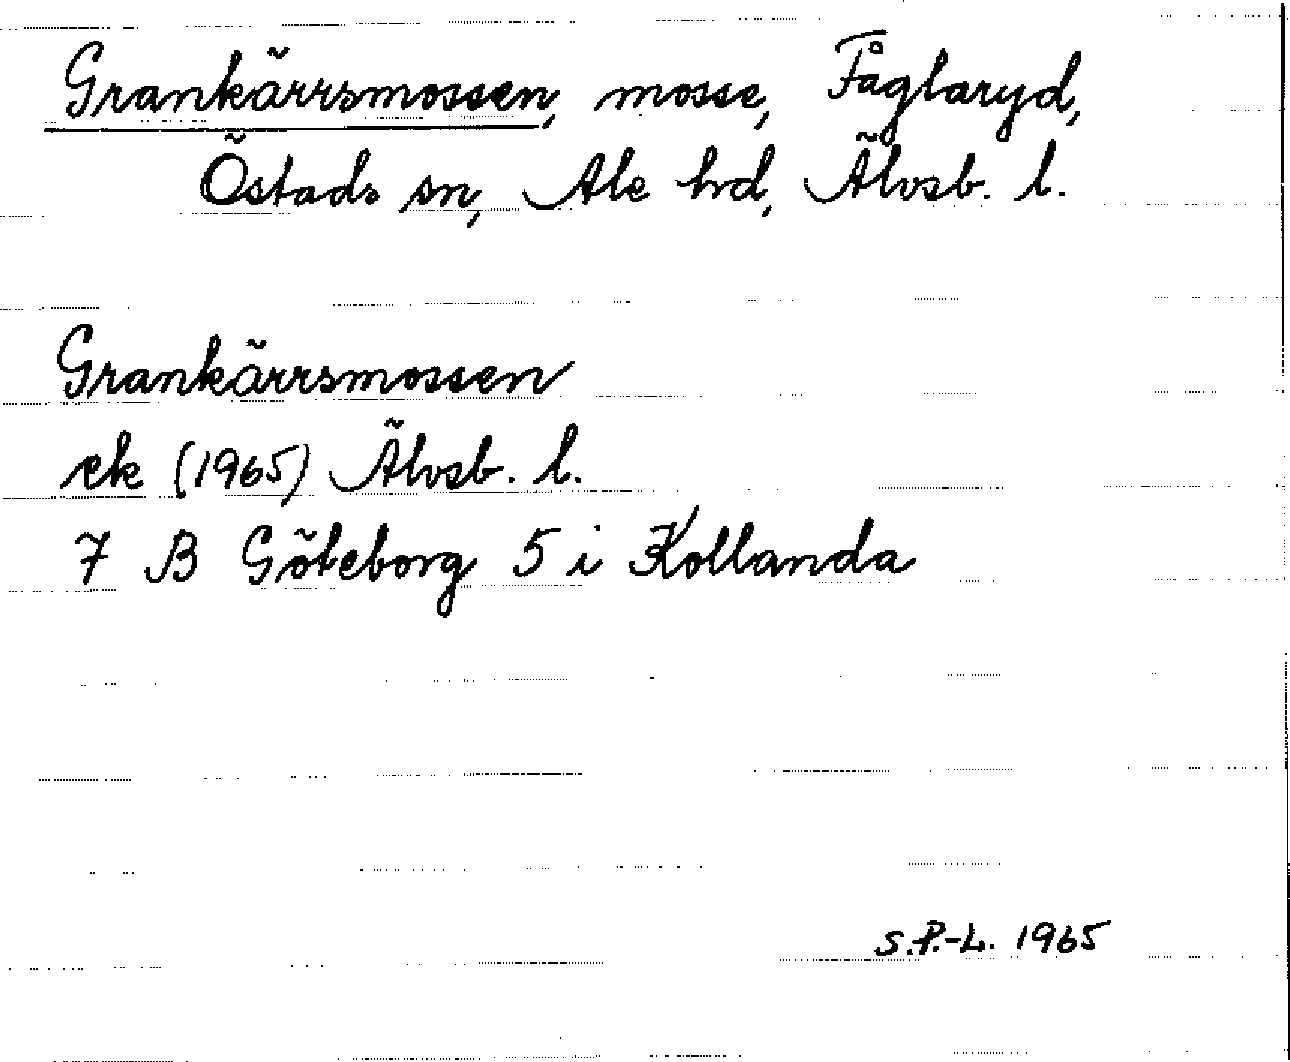 Grankärrsmossen, mosse, Fåglaryd,
Östads sn, Ale hrd, Älvsb. l.
Grankärrsmossen
ek (1965) Älvsb. l.
7 B Göteborg 5 i Kollanda
S.P.-L. 1965